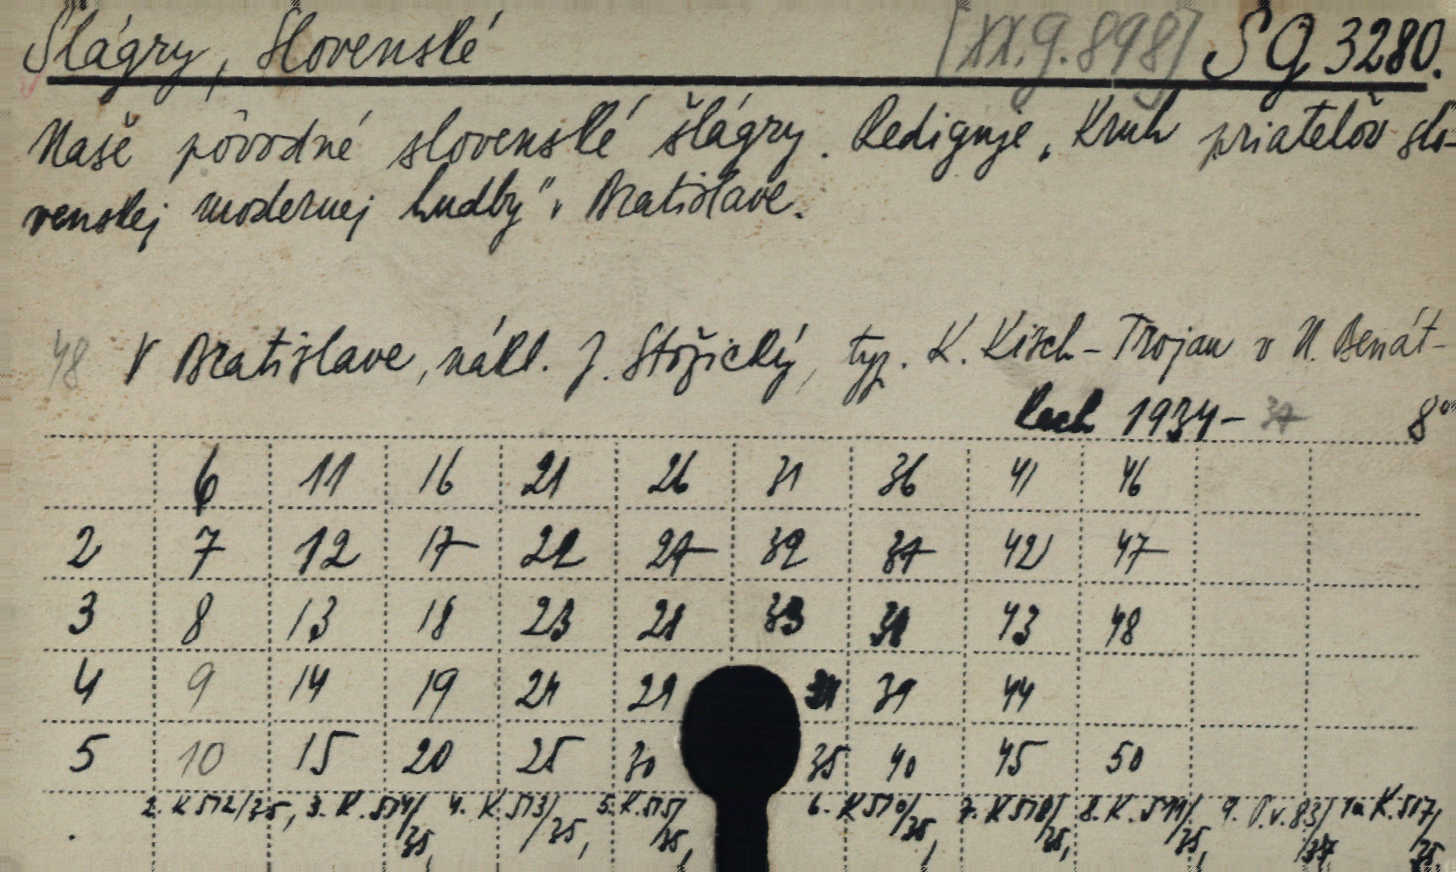 Šlágry, Slovenské [XX.g.898] SG 3280.
Naše pôvodné slovenské šlágry. Rediguje „Kruh priatelôv slo-
venskej modernej hudby" v Bratislave.
48 V Bratislave, nákl. J. Stožický, typ. K. Kisch-Trojan v N. Benát-
kach 1934-37 8°
6 11 16 21 26 31 36 41 46
2 7 12 17 22 27 32 37 42 47
3 8 13 18 23 28 33 38 43 48
4 9 14 19 24 29 34 39 44
5 10 15 20 25 30 35 40 45 50
2. K 512/35, 3. K. 514/35, 4. K. 513/35, 5. K. 515/35, 6. K 510/35, 7. K 518/35, 8. K. 511/35, 9. 83/37 10 K. 517/35